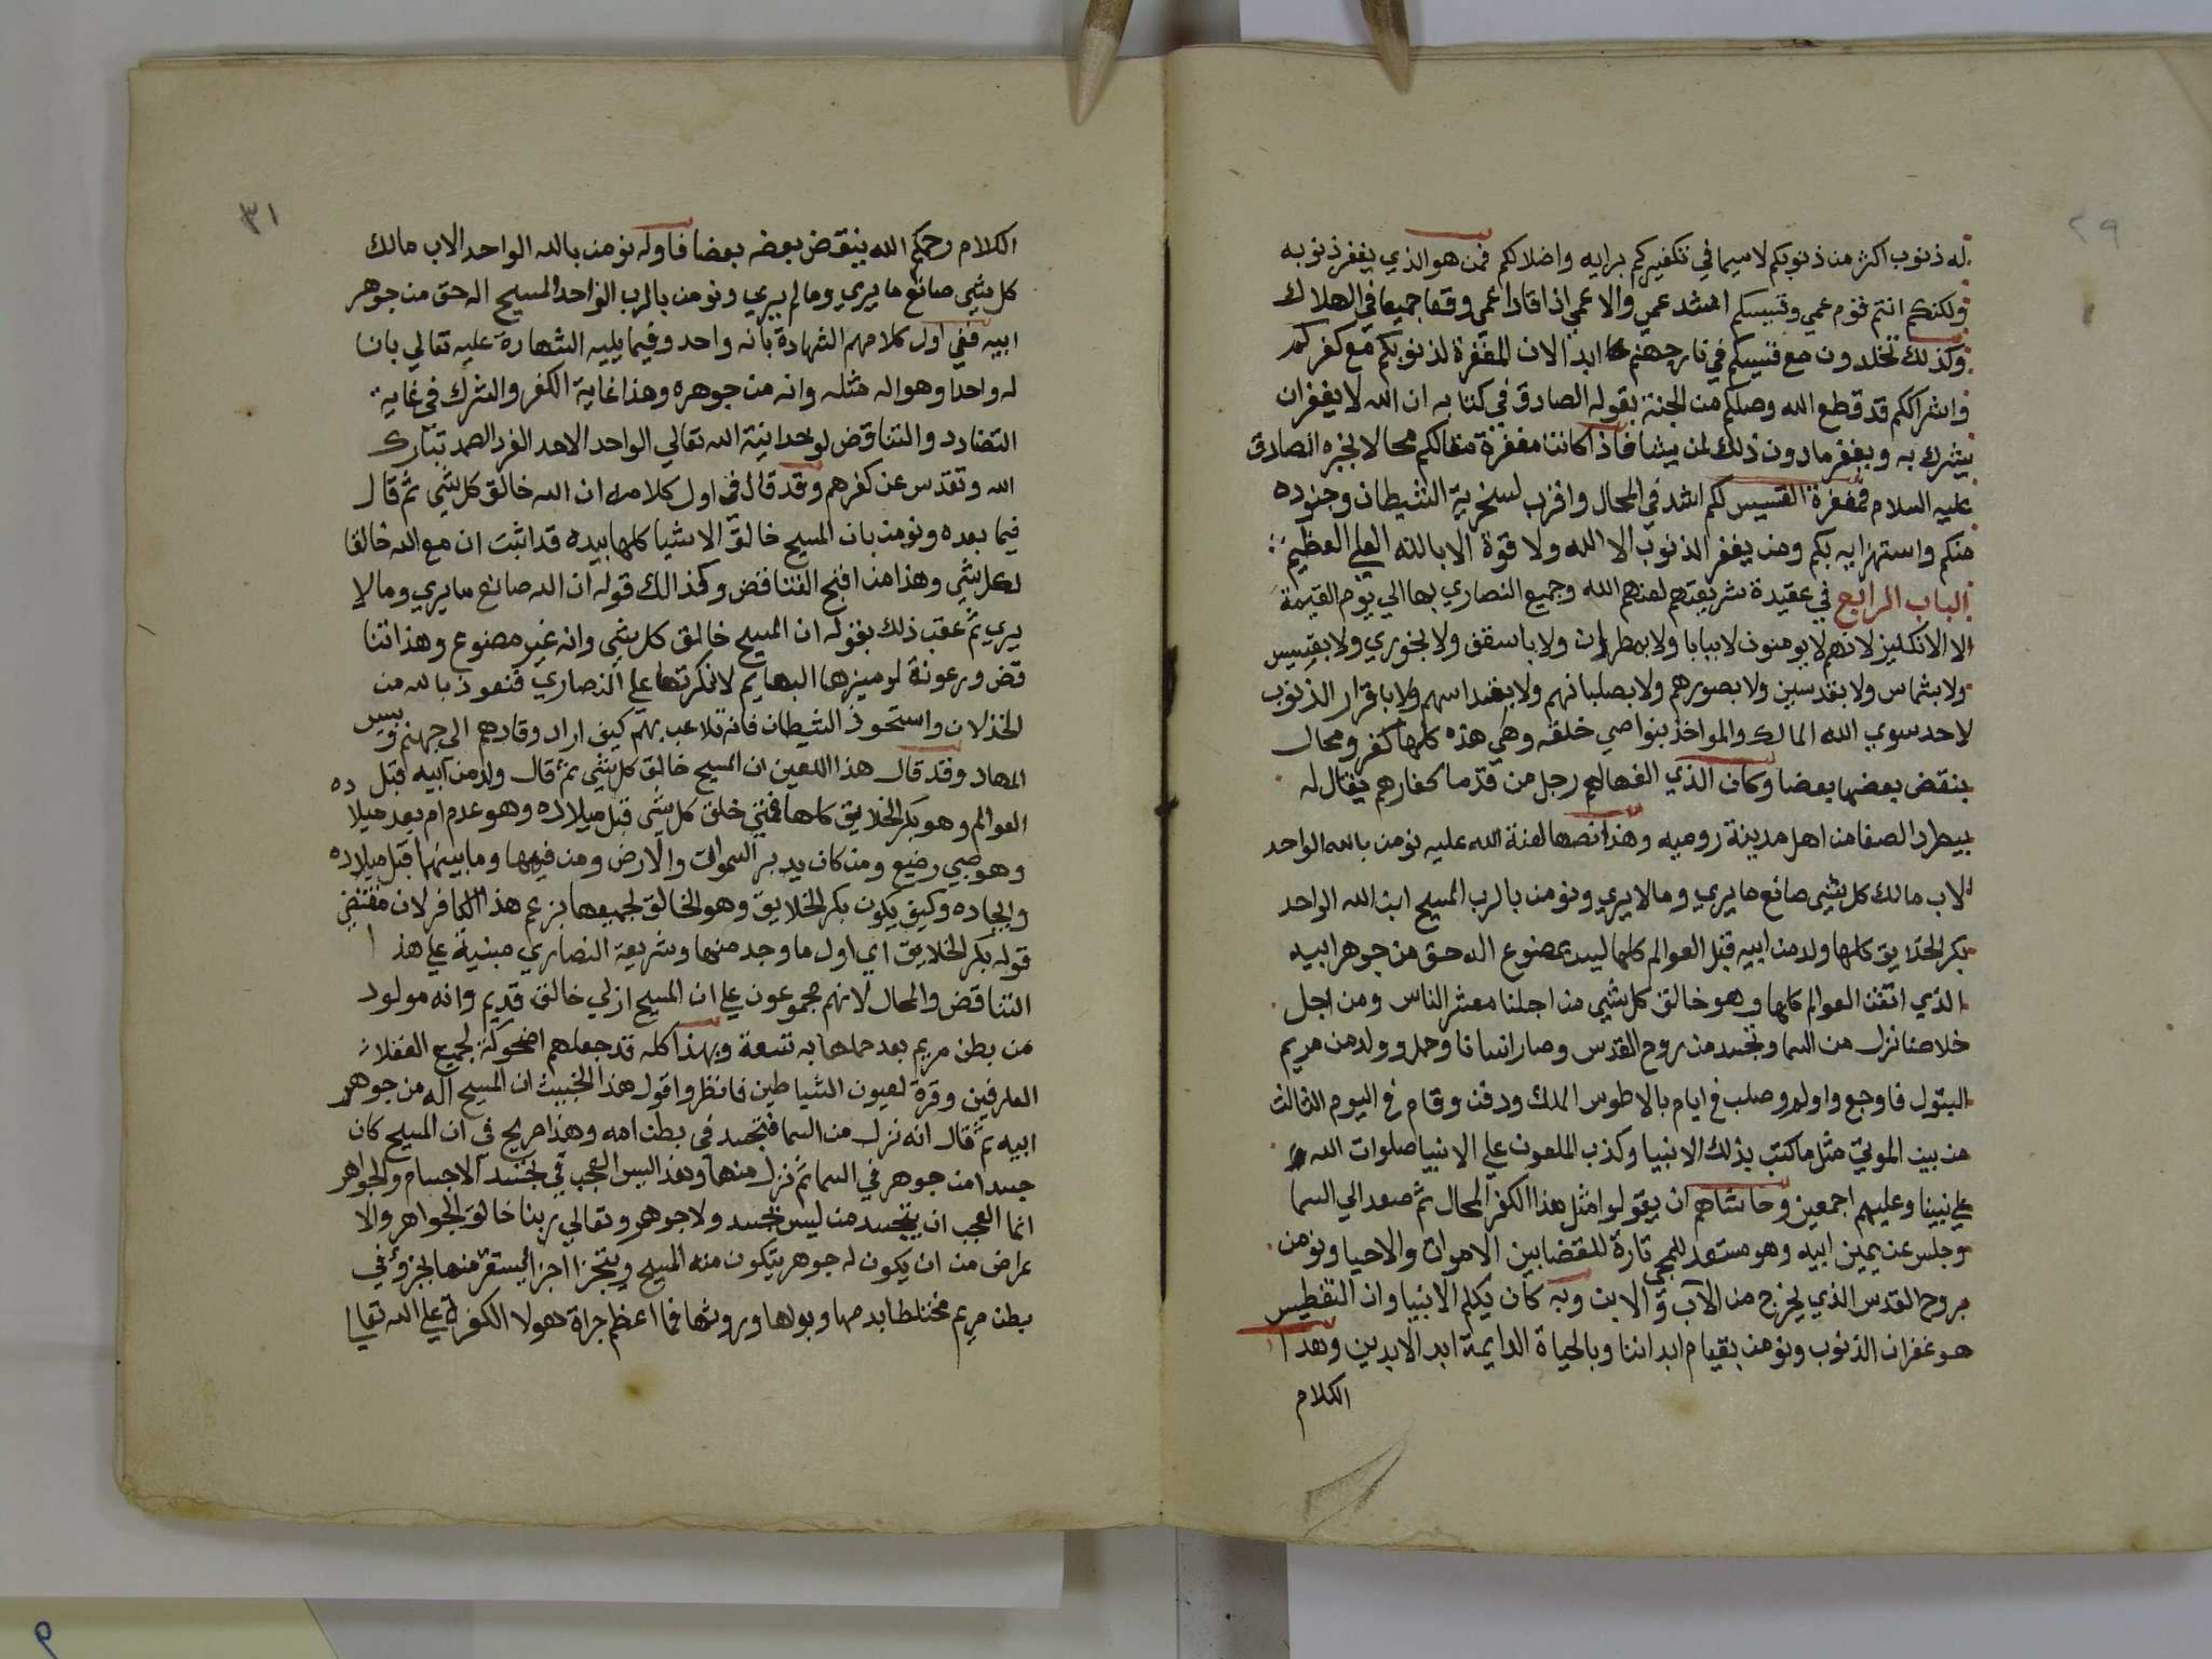 ٢٩
له ذنوب اكثر من ذنوبكم لاسيما في تكفيركم برايه واضلالكم فمن هو الذي يغفر ذنوبه
ولكنكم انتم قوم عمي وقسيسكم اشد عمي والاعمي اذا قاد اعمي وقعا جميعا في الهلاك
وكذلك تخلدون مع قسيسكم في نار جهنم ابدا لان المغفرة لذنوبكم مع كفركم
واشراككم قد قطع الله وصلكم من الجنة بقوله الصادق في كتابه ان الله لا يغفر ان
يشرك به ويغفر مادون ذلك لمن يشا فاذا كانت مغفرة متالكم محالا بخبره الصادق
عليه السلام فمغفرة القسيس لكم اشد في المحال واقرب لسخرية الشيطان وجنوده
منكم واستهزايه بكم ومن يغفر الذنوب الا الله ولا قوة الا بالله العلي العظيم
الباب الرابع في عقيدة شريعتهم لعنهم الله وجميع النصاري بها الي يوم القيمة
الا الانكليز لانهم لا يومنون لا ببابا ولا بمطران ولا باسقف ولا بخوري ولا بقسيس
ولا بشماس ولا بقدسين ولا بصورهم ولا بصلبانهم ولا بقداسهم ولا باقرار الذنوب
لاحد سوي الله المالك والمواخذ بنواصي خلقه وهي هذه كلها كفر ومحال
ينقض بعضها بعضا وكان الذي الفها لهم رجل من قدما كفارهم يقال له
بيطر الصفا من اهل مدينة روميه وهذا نصها لعنة الله عليه نومن بالله الواحد
الاب مالك كل شي صانع ما يري وما لا يري ونومن بالرب المسيح ابن الله الواحد
بكر الخلايق كلها ولد من ابيه قبل العوالم كلها ليس بمصنوع اله حق من جوهر ابيه
الذي اتقن العوالم كلها وهو خالق كل شي من اجلنا معشر الناس ومن اجل
خلاصنا نزل من السما وتجسد من روح القدس وصار انسانا وحمل وولد من مريم
البتول فاوجع واولم وصلب في ايام بالاطوس الملك ودفن وقام في اليوم الثالث
من بين الموتي مثل ما كتب بذلك الانبيا وكذب الملعون علي الانبيا صلوات الله
علي نبينا وعليهم اجمعين وحاشاهم ان يقولوا مثل هذا الكفر المحال ثم صعد الي السما
وجلس عن يمين ابيه وهو مستعد للمجي تارة للقضا بين الاموات والاحيا ونومن
بروح القدس الذي يخرج من الآب و الابن وبه كان يكلم الانبيا وان التغطيس
هو غفران الذنوب ونومن بقيام ابداننا وبالحياة الدايمة ابد الابدين وهذا
الكلام
٣١
الكلام رحمكم الله ينقض بعضه بعضا فاوله نومن بالله الواحد الاب مالك
كل شي صانع ما يري وما لم يري ونومن بالرب الواحد المسيح اله حق من جوهر
ابيه ففي اول كلامهم الشهادة بانه واحد وفيما يليه الشهادة عليه تعالي بان
له واحدا وهو اله مثله وانه من جوهره وهذا غاية الكفر والشرك في غاية
التضادد والتناقض لوحدانية الله تعالي الواحد الاحد الفرد الصمد تبارك
الله وتقدس عن كفرهم وقد قال في اول كلامه ان الله خالق كل شي ثم قال
فيما بعده ونومن بان المسيح خالق الاشيا كلها بيده قد اثبت ان مع الله خالقا
لكل شي وهذا من اقبح التناقض وكذالك قوله ان الله صانع ما يري وما لا
يري ثم عقب ذلك بقوله ان المسيح خالق كل شي وانه غير مصنوع وهذا تنا
قض ورعونة لو ميزها البهايم لانكرتها علي النصاري فنعوذ بالله من
الخذلان واستحوذ الشيطان فانه تلاعب بهم كيف اراد وقادهم الي جهنم وبيس
المهاد وقد قال هذا اللعين ان المسيح خالق كل شي ثم قال ولد من ابيه قبل
العوالم وهو بكر الخلايق كلها فمتي خلق كل شي قبل ميلاده وهو عدم ام بعد ميلاده
وهو صبي رضيع ومن كان يدبر السموات والارض ومن فيهما وما بينهما قبل ميلاده
وايجاده وكيف يكون بكر الخلايق وهو الخالق لجميعها بزعم هذا الكافر لان مقتضي
قوله بكر الخلايق اي اول ما وجد منها وشريعة النصاري مبنية علي هذا
التناقض والمحال لانهم مجموعون علي ان المسيح ازلي خالق قديم وانه مولود
من بطن مريم بعد حملها به تسعة وبهذا كله قد جعلهم اضحوكة لجميع العقلا
العارفين وقرة لعيون الشياطين فانظروا قول هذا الخبيث ان المسيح اله من جوهر
ابيه ثم قال انه نزل من السما فتجسد في بطن امه وهذا صريح في ان المسيح كان
جسدا من جوهر في السما ثم نزل منها وبعد اليس العجب في تجسد الاجسام والجواهر
انما العجب ان يتجسد من ليس بجسد ولا جوهر وتعالي ربنا خالق الجواهر والا
عراض من ان يكون له جوهر يتكون منه المسيح ويتجزا اجزا يستقر منها بجزؤ في
بطن مريم مختلطا بدمها وبولها وروثها فما اعظم جراة هولا الكفرة علي الله تعالي